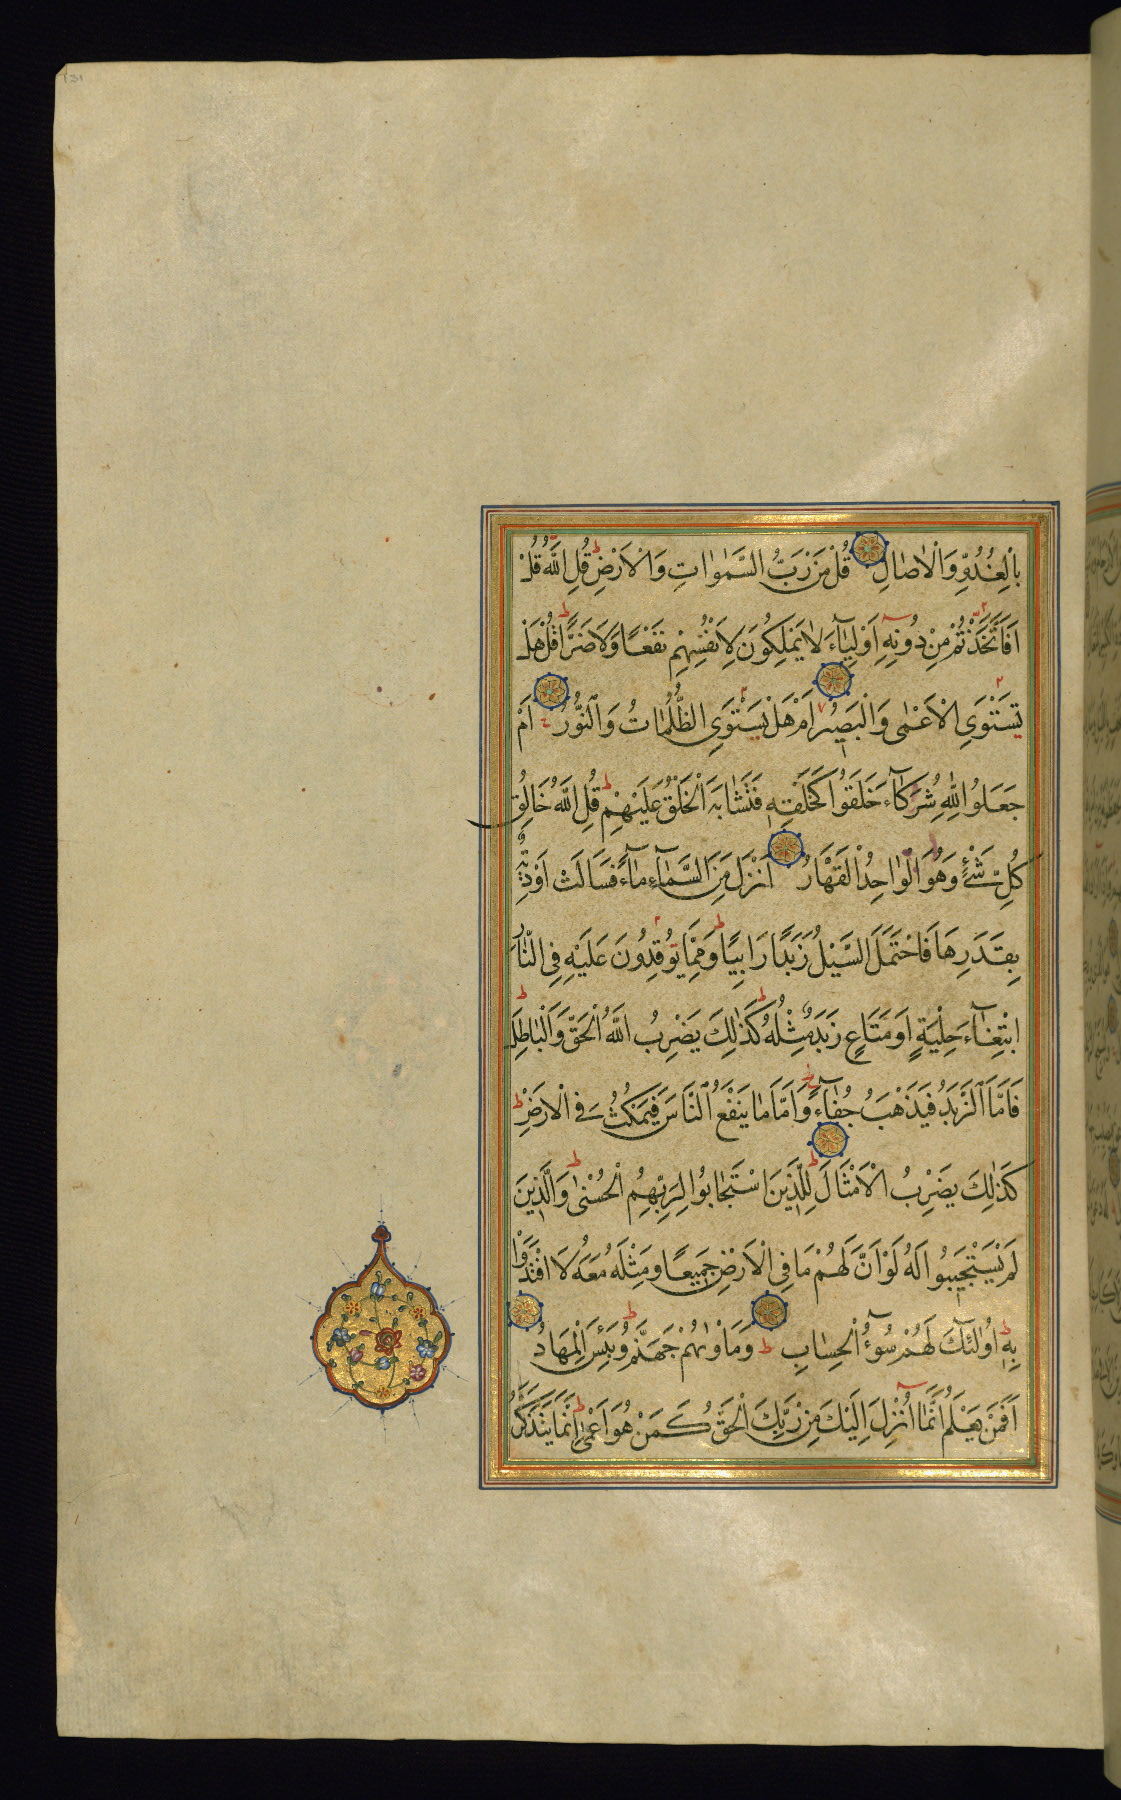 بِالْغُدُوِّ وَالْاٰصَالِ قُلْ مَنْ رَبُّ السَّمٰوَاتِ وَالْاَرْضِ قُلِ اللّٰهُ قُلْ
اَفَاتَّخَذْتُمْ مِنْ دُونِهٖ اَوْلِيَآءَ لَا يَمْلِكُونَ لِاَنْفُسِهِمْ نَفْعًا وَلَا ضَرًّا قُلْ هَلْ
تَسْتَوِي الْاَعْمٰى وَالْبَصِيرُ اَمْ هَلْ يَسْتَوِي الظُّلُمَاتُ وَالنُّورُ اَمْ
جَعَلُوا لِلّٰهِ شُرَكَآءَ خَلَقُوا كَخَلْقِهٖ فَتَشَابَهَ الْخَلْقُ عَلَيْهِمْ قُلِ اللّٰهُ خَالِقُ
كُلِّ شَيْءٍ وَهُوَ الْوَاحِدُ الْقَهَّارُ اَنْزَلَ مِنَ السَّمَآءِ مَآءً فَسَالَتْ اَوْدِيَةٌ
بِقَدَرِهَا فَاحْتَمَلَ السَّيْلُ زَبَدًا رَابِيًا وَمِمَّا يُوقِدُونَ عَلَيْهِ فِي النَّارِ
ابْتِغَآءَ حِلْيَةٍ اَوْ مَتَاعٍ زَبَدٌ مِثْلُهُ كَذٰلِكَ يَضْرِبُ اللّٰهُ الْحَقَّ وَالْبَاطِلَ
فَاَمَّا الزَّبَدُ فَيَذْهَبُ جُفَآءً وَاَمَّا مَا يَنْفَعُ النَّاسَ فَيَمْكُثُ فِي الْاَرْضِ
كَذٰلِكَ يَضْرِبُ الْاَمْثَالَ لِلَّذِينَ اسْتَجَابُوا لِرَبِّهِمُ الْحُسْنٰى وَالَّذِينَ
لَمْ يَسْتَجِيبُوا لَهُ لَوْ اَنَّ لَهُمْ مَا فِي الْاَرْضِ جَمِيعًا وَمِثْلَهُ مَعَهُ لَافْتَدَوْا
بِهٖ اُولٰئِكَ لَهُمْ سُوٓءُ الْحِسَابِ وَمَاْوٰيهُمْ جَهَنَّمُ وَبِئْسَ الْمِهَادُ
اَفَمَنْ يَعْلَمُ اَنَّمَا اُنْزِلَ اِلَيْكَ مِنْ رَبِّكَ الْحَقُّ كَمَنْ هُوَ اَعْمٰى اِنَّمَا يَتَذَكَّرُ